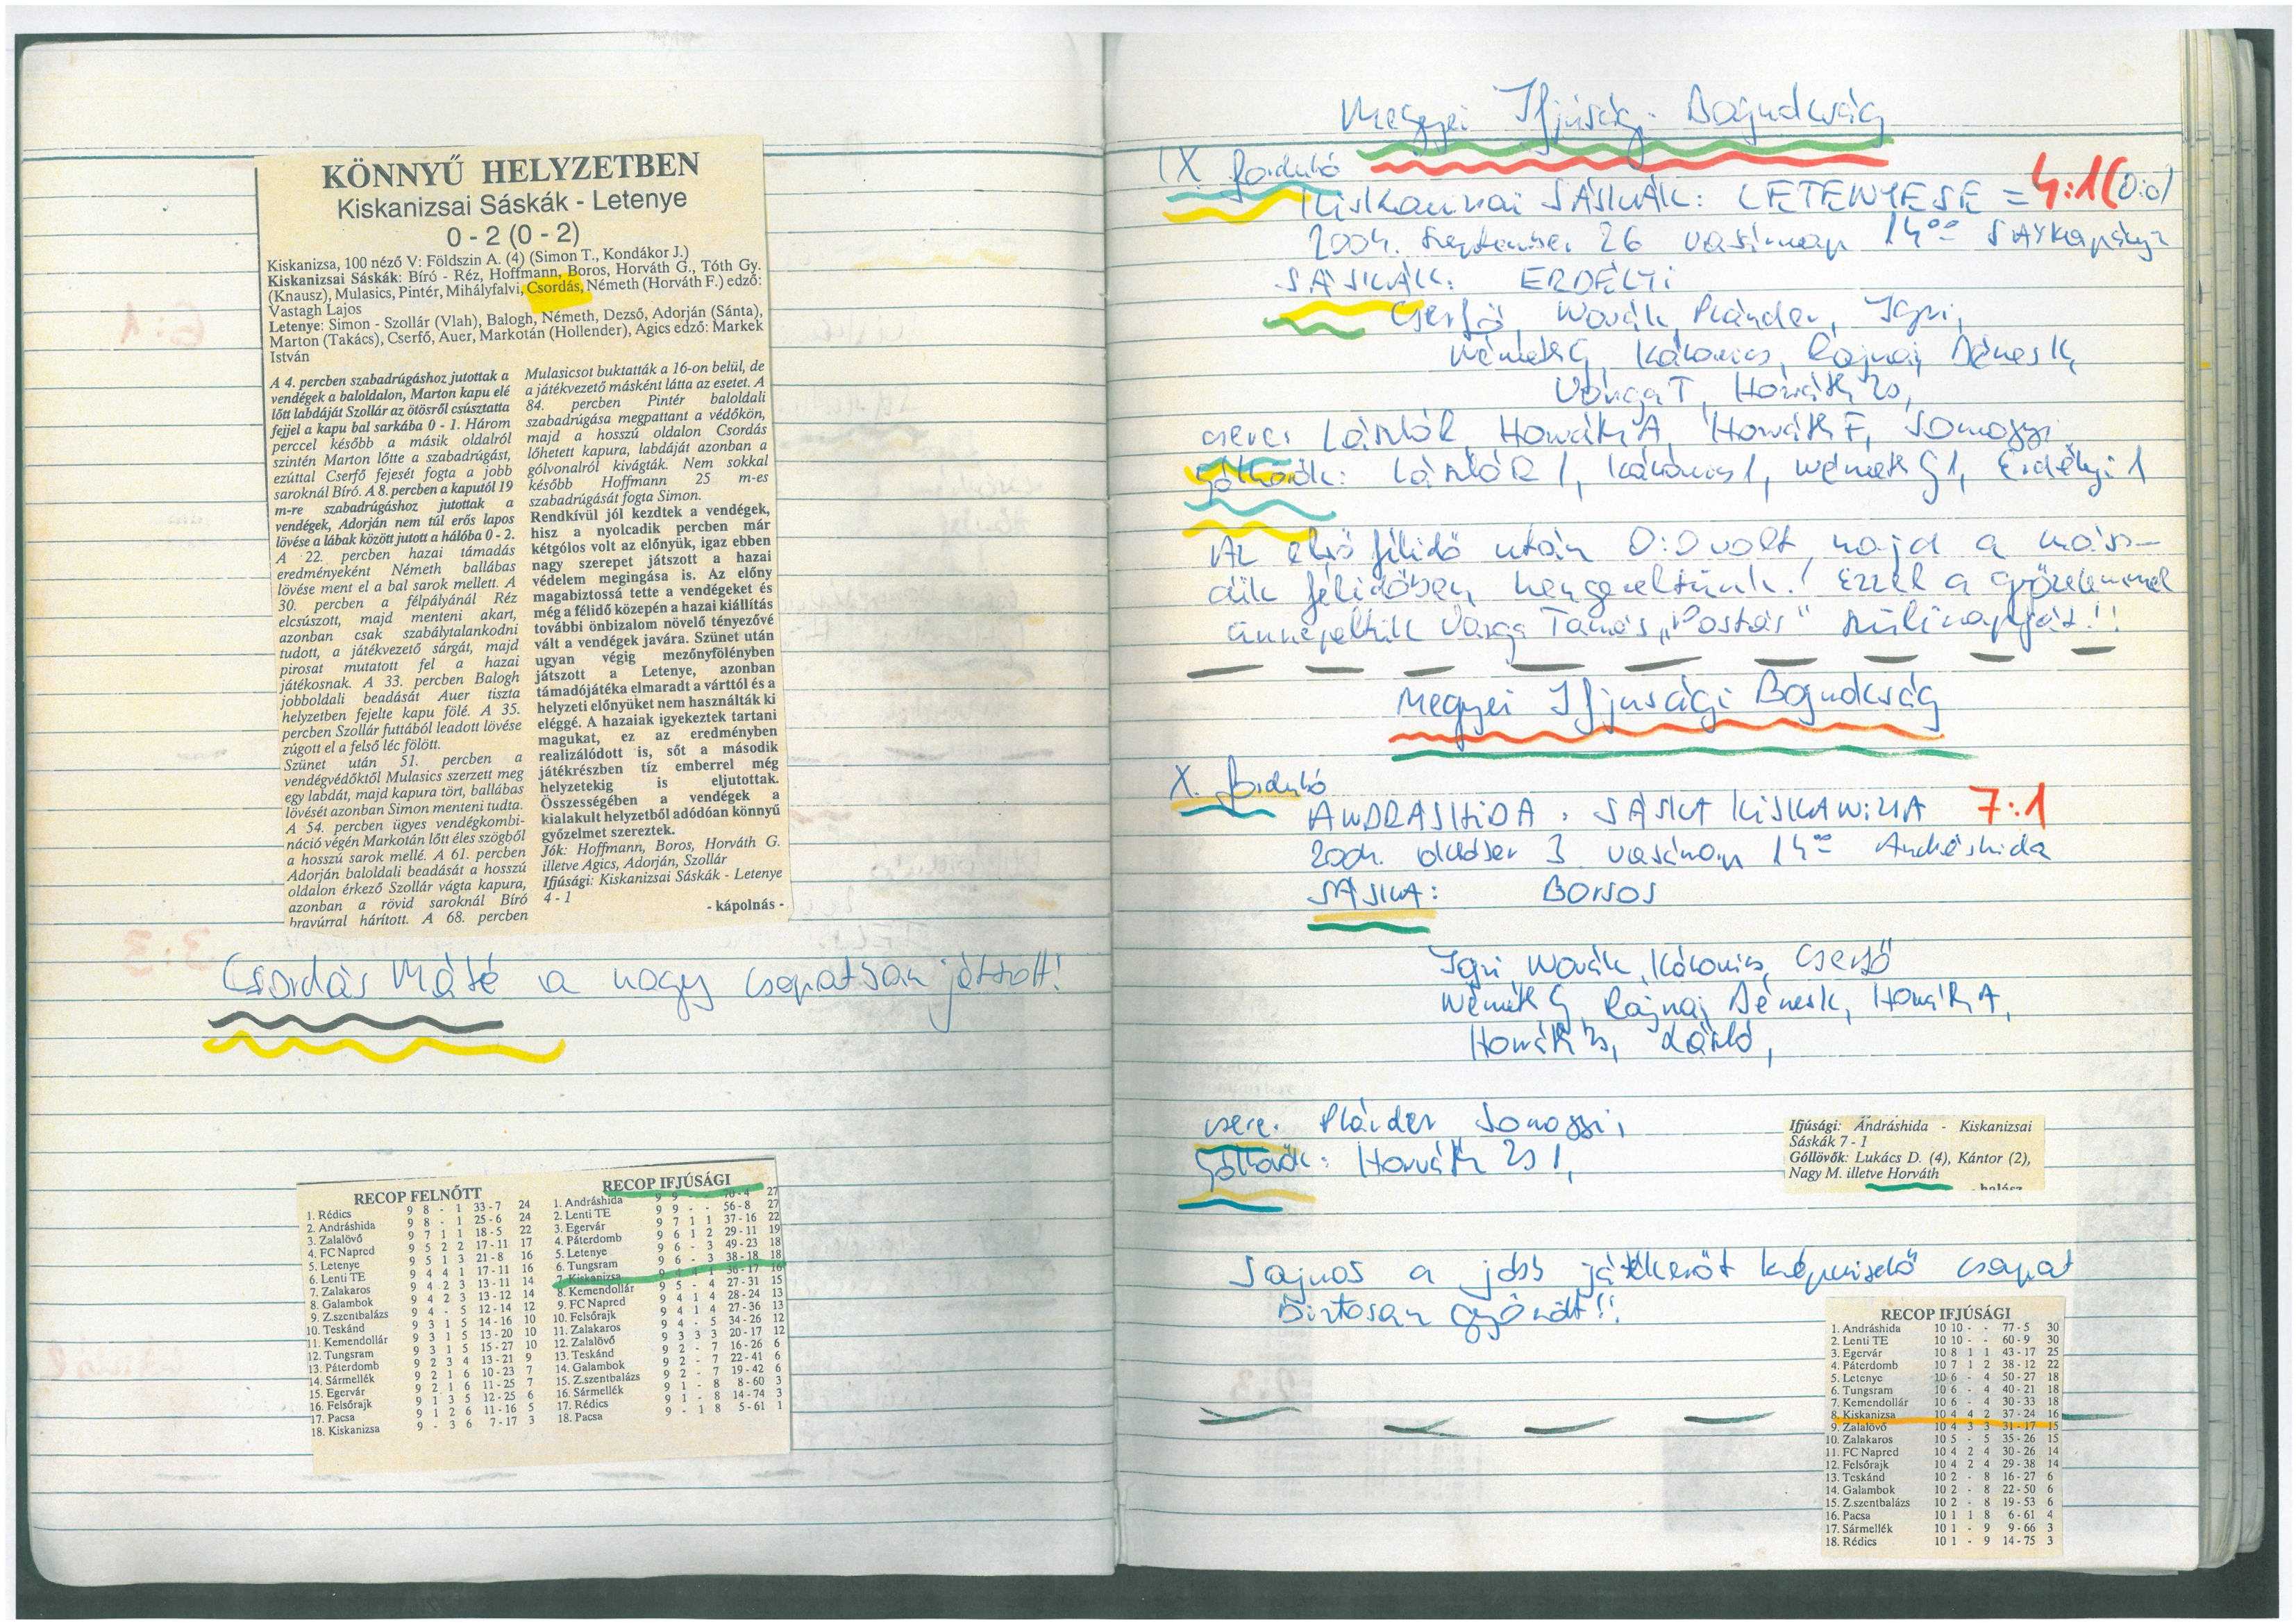 KÖNNYŰ HELYZETBEN
Kiskanizsai Sáskák - Letenye
0 - 2 (0 - 2)
Kiskanizsa, 100 néző V: Földszin A. (4) (Simon T., Kondákor J.)
Kiskanizsai Sáskák: Bíró - Réz, Hoffmann, Boros, Horváth G., Tóth Gy.
(Knausz), Mulasics, Pintér, Mihályfalvi, Csordás, Németh (Horváth F.) edző:
Vastagh Lajos
Letenye: Simon - Szollár (Vlah), Balogh, Németh, Dezső, Adorján (Sánta),
Marton (Takács), Cserfő, Auer, Markotán (Hollender), Agics edző: Markek
István
A 4. percben szabadrúgáshoz jutottak a
vendégek a baloldalon, Marton kapu elé
lőtt labdáját Szollár az ötösről csúsztatta
fejjel a kapu bal sarkába 0 - 1. Három
perccel később a másik oldalról
szintén Marton lőtte a szabadrúgást,
ezúttal Cserfő fejesét fogta a jobb
saroknál Bíró. A 8. percben a kaputól 19
m-re szabadrúgáshoz jutottak a
vendégek, Adorján nem túl erős lapos
lövése a lábak között jutott a hálóba 0 - 2.
A 22. percben hazai támadás
eredményeként Németh ballábas
lövése ment el a bal sarok mellett. A
30. percben a félpályánál Réz
elcsúszott, majd menteni akart,
azonban csak szabálytalankodni
tudott, a játékvezető sárgát, majd
pirosat mutatott fel a hazai
játékosnak. A 33. percben Balogh
jobboldali beadását Auer tiszta
helyzetben fejelte kapu fölé. A 35.
percben Szollár futtából leadott lövése
zúgott el a felső léc fölött.
Szünet után 51. percben a
vendégvédőktől Mulasics szerzett meg
egy labdát, majd kapura tört, ballábas
lövését azonban Simon menteni tudta.
A 54. percben ügyes vendégkombi-
náció végén Markotán lőtt éles szögből
a hosszú sarok mellé. A 61. percben
Adorján baloldali beadását a hosszú
oldalon érkező Szollár vágta kapura,
azonban a rövid saroknál Bíró
bravúrral hárított. A 68. percben
Mulasicsot buktatták a 16-on belül, de
a játékvezető másként látta az esetet. A
84. percben Pintér baloldali
szabadrúgása megpattant a védőkön,
majd a hosszú oldalon Csordás
lőhetett kapura, labdáját azonban a
gólvonalról kivágták. Nem sokkal
később Hoffmann 25 m-es
szabadrúgását fogta Simon.
Rendkívül jól kezdtek a vendégek,
hisz a nyolcadik percben már
kétgólos volt az előnyük, igaz ebben
nagy szerepet játszott a hazai
védelem megingása is. Az előny
magabiztossá tette a vendégeket és
még a félidő közepén a hazai kiállítás
további önbizalom növelő tényezővé
vált a vendégek javára. Szünet után
ugyan végig mezőnyfölényben
játszott a Letenye, azonban
támadójátéka elmaradt a várttól és a
helyzeti előnyüket nem használták ki
eléggé. A hazaiak igyekeztek tartani
magukat, ez az eredményben
realizálódott is, sőt a második
játékrészben tíz emberrel még
helyzetekig is eljutottak.
Összességében a vendégek a
kialakult helyzetből adódóan könnyű
győzelmet szereztek.
Jók: Hoffmann, Boros, Horváth G.
illetve Agics, Adorján, Szollár
Ifjúsági: Kiskanizsai Sáskák - Letenye
4 - 1
- kápolnás -
Csordás Máté a nagy csapatban játszott!
RECOP FELNŐTT
1. Rédics 9 8 - 1 33 - 7 24
2. Andráshida 9 8 - 1 25 - 6 24
3. Zalalövő 9 7 1 1 18 - 5 22
4. FC Napred 9 5 2 2 17 - 11 17
5. Letenye 9 5 1 3 21 - 8 16
6. Lenti TE 9 4 4 1 17 - 11 16
7. Zalakaros 9 4 2 3 13 - 11 14
8. Galambok 9 4 2 3 13 - 12 14
9. Z.szentbalázs 9 4 - 5 12 - 14 12
10. Teskánd 9 3 1 5 14 - 16 10
11. Kemendollár 9 3 1 5 13 - 20 10
12. Tungsram 9 3 1 5 15 - 27 10
13. Páterdomb 9 2 3 4 13 - 21 9
14. Sármellék 9 2 1 6 10 - 23 7
15. Egervár 9 2 1 6 11 - 25 7
16. Felsőrajk 9 1 3 5 12 - 25 6
17. Pacsa 9 1 2 6 11 - 16 5
18. Kiskanizsa 9 - 3 6 7 - 17 3
RECOP IFJÚSÁGI
1. Andráshida 9 9 - - 70 - 4 27
2. Lenti TE 9 9 - - 56 - 8 27
3. Egervár 9 7 1 1 37 - 16 22
4. Páterdomb 9 6 1 2 29 - 11 19
5. Letenye 9 6 - 3 49 - 23 18
6. Tungsram 9 6 - 3 38 - 18 18
7. Kiskanizsa 9 4 4 1 36 - 17 16
8. Kemendollár 9 5 - 4 27 - 31 15
9. FC Napred 9 4 1 4 28 - 24 13
10. Felsőrajk 9 4 1 4 27 - 36 13
11. Zalakaros 9 4 - 5 34 - 26 12
12. Zalalövő 9 3 3 3 20 - 17 12
13. Teskánd 9 2 - 7 16 - 26 6
14. Galambok 9 2 - 7 22 - 41 6
15. Z.szentbalázs 9 2 - 7 19 - 42 6
16. Sármellék 9 1 - 8 8 - 60 3
17. Rédics 9 1 - 8 14 - 74 3
18. Pacsa 9 - 1 8 5 - 61 1
Megyei Ifjúság. Bajnokság
IX. forduló
Kiskanizsai SÁSKÁK : LETENYE SE = 4:1 (0:0)
2004. szeptember 26 vasárnap 14°° SÁSKApálya
SÁSKÁK: ERDÉLYI
Cserfő, Novák, Plánder, Igri,
Németh G, Kákonics, Rajnai, Dénes K,
Varga T, Horváth Zs,
csere: László R, Horváth A, Horváth F, Somogyi
góllövők: László R 1, Kákonics 1, Németh G 1, Erdélyi 1
Az első félidő után 0:0 volt, majd a máso-
dik félidőben hengereltünk! Ezzel a győzelemmel
ünnepeltük Varga Tamás „Postás" szülinapját!!
Megyei Ifjusági Bajnokság
X. forduló
ANDRÁSHIDA : SÁSKA KISKANIZSA 7:1
2004. október 3 vasárnap 14°° Andráshida
SÁSKA: BOROS
Igri Novák, Kákonics, Cserfő
Németh G, Rajnai, Dénes K, Horváth A,
Horváth Zs, László,
csere: Plánder Somogyi,
Góllövők: Horváth Zs 1,
Ifjúsági: Andráshida - Kiskanizsai
Sáskák 7 - 1
Góllövők: Lukács D. (4), Kántor (2),
Nagy M. illetve Horváth
- balász
Sajnos a jobb játékerőt képviselő csapat
biztosan győzött!!
RECOP IFJÚSÁGI
1. Andráshida 10 10 - - 77 - 5 30
2. Lenti TE 10 10 - - 60 - 9 30
3. Egervár 10 8 1 1 43 - 17 25
4. Páterdomb 10 7 1 2 38 - 12 22
5. Letenye 10 6 - 4 50 - 27 18
6. Tungsram 10 6 - 4 40 - 21 18
7. Kemendollár 10 6 - 4 30 - 33 18
8. Kiskanizsa 10 4 4 2 37 - 24 16
9. Zalalövő 10 4 3 3 31 - 17 15
10. Zalakaros 10 5 - 5 35 - 26 15
11. FC Napred 10 4 2 4 30 - 26 14
12. Felsőrajk 10 4 2 4 29 - 38 14
13. Teskánd 10 2 - 8 16 - 27 6
14. Galambok 10 2 - 8 22 - 50 6
15. Z.szentbalázs 10 2 - 8 19 - 53 6
16. Pacsa 10 1 1 8 6 - 61 4
17. Sármellék 10 1 - 9 9 - 66 3
18. Rédics 10 1 - 9 14 - 75 3